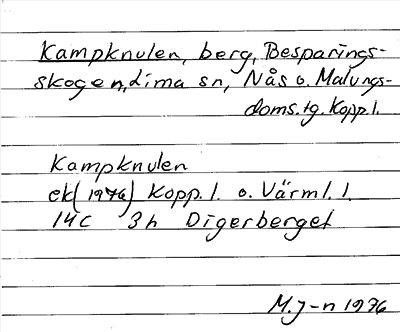 Kampknulen, berg, Besparings-
skogen, Lima sn, Nås o. Malungs-
doms. tg. Kopp. l.
Kampknulen
ek (1976) Kopp. l. o. Värml. l.
14c 3h Digerberget
M. J-n 1976